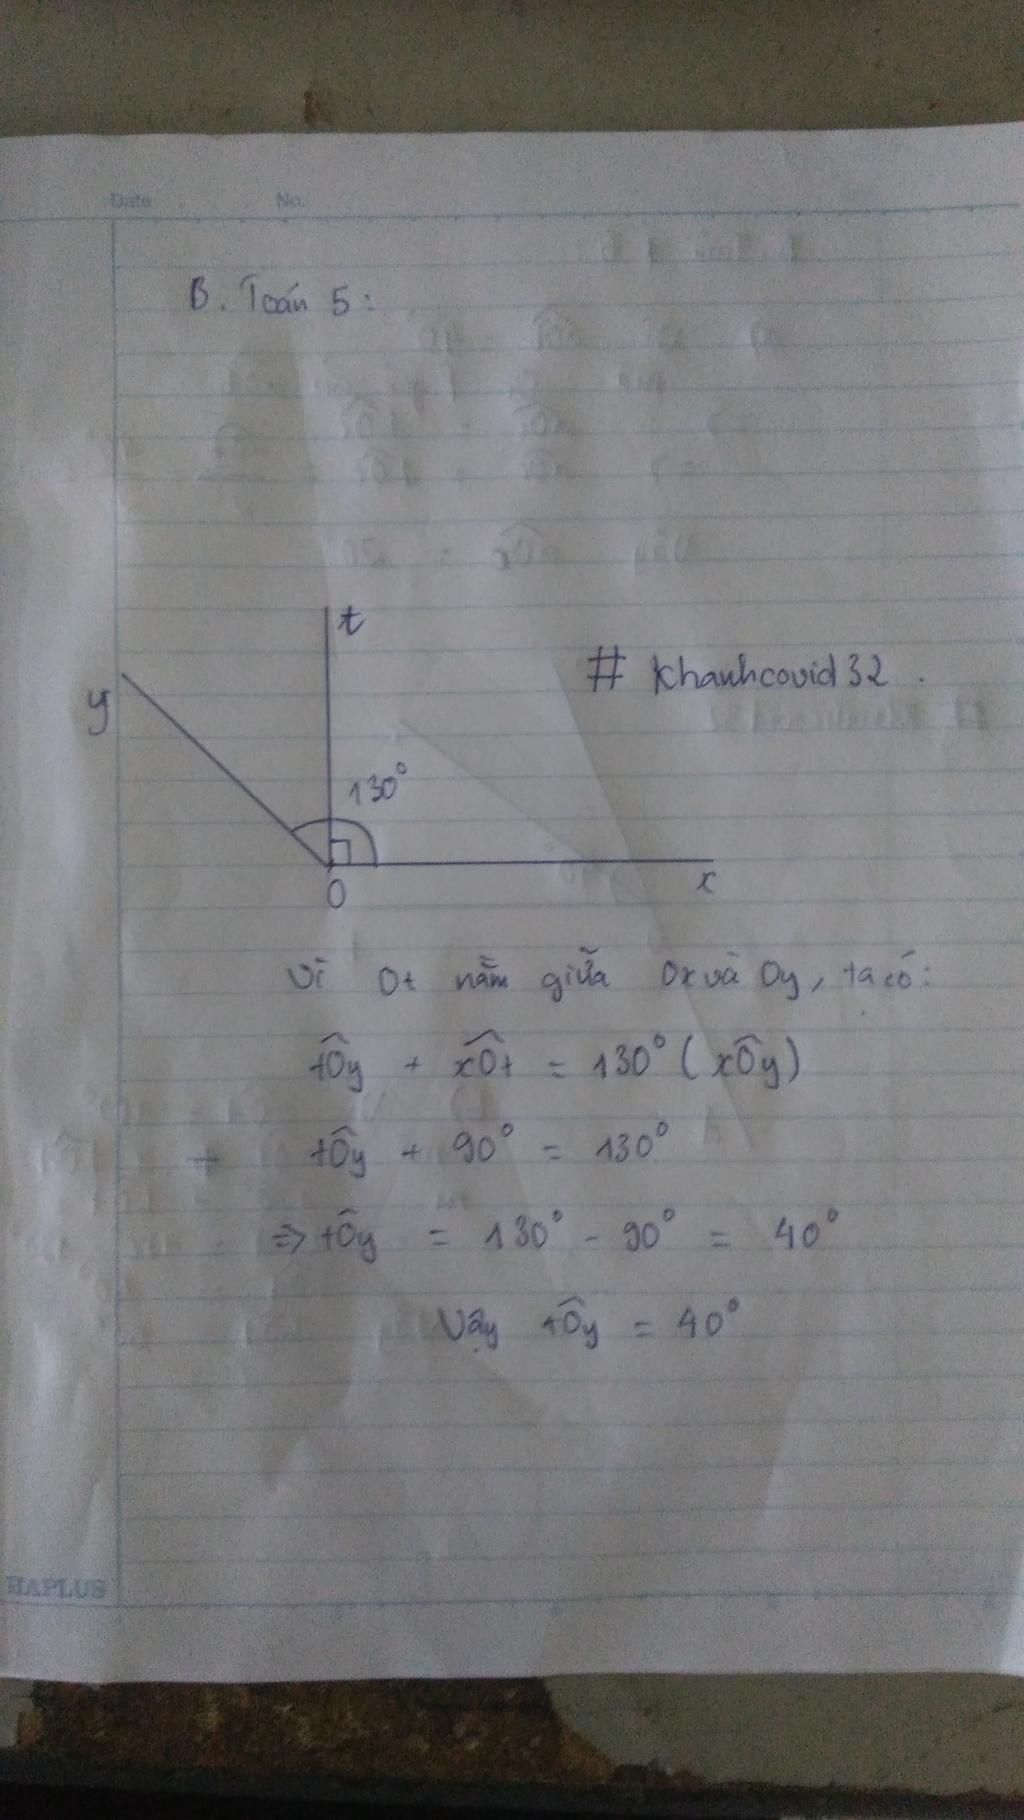 Date No.
B. Toán 5:
t
# Khanhcovid32.
y
130°
O
x
Vì Ot nằm giữa Ox và Oy, ta có:
tÔy + xÔt = 130° (xÔy)
tÔy + 90° = 130°
=> tÔy = 130° - 90° = 40°
Vậy tÔy = 40°
HAPLUS